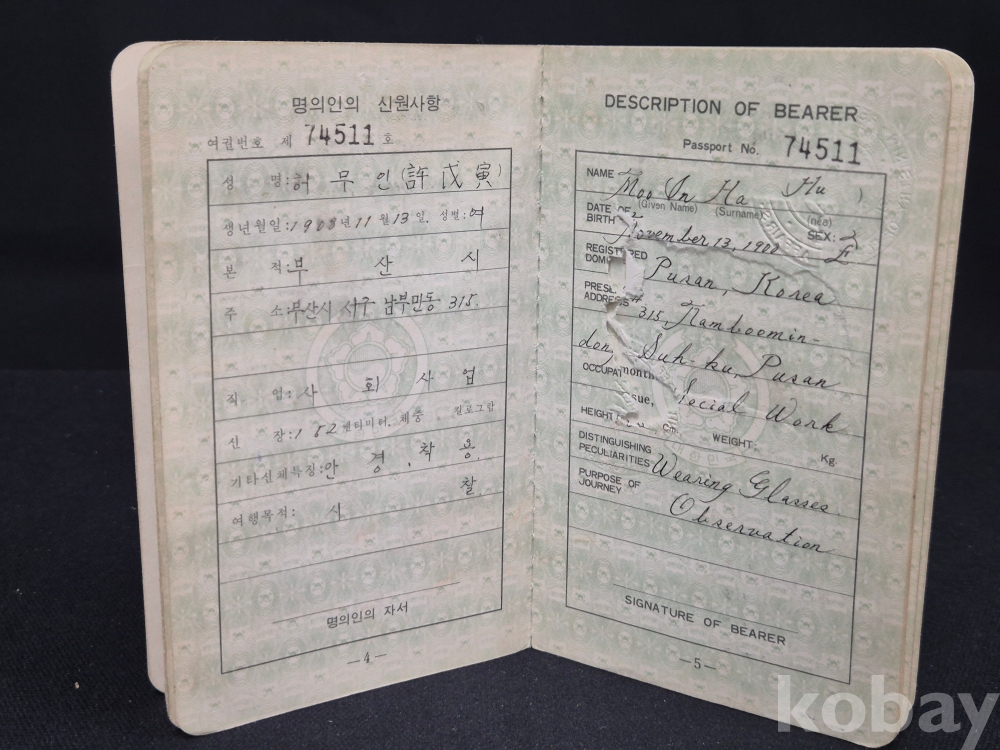 명의인의 신원사항
여권번호 제 74511 호
성 명: 허 무 인 (許戊寅)
생년월일: 1908년 11월 13일. 성별: 여
본 적: 부 산 시
주 소: 부산시 서구 남부민동 315.
직 업: 사 회 사 업
신 장: 152 센티미터. 체중 킬로그람
기타신체특징: 안 경, 착 용.
여행목적: 시 찰
명의인의 자서
—4—
DESCRIPTION OF BEARER
Passport No. 74511
NAME Moo In Ha Hu )
(Given Name) (Surname) (née)
DATE OF BIRTH November 13, 1908 SEX: F
REGISTERED Pusan, Korea
PRESENT ADDRESS # 315, Namboomin-
don, Suh-ku, Pusan
month
OCCUPAT Social Work
ssue,
HEIGHT Cm. WEIGHT: Kg.
DISTINGUISHING PECULIARITIES Wearing Glasses.
PURPOSE OF JOURNEY Observation
SIGNATURE OF BEARER
—5—
kobay